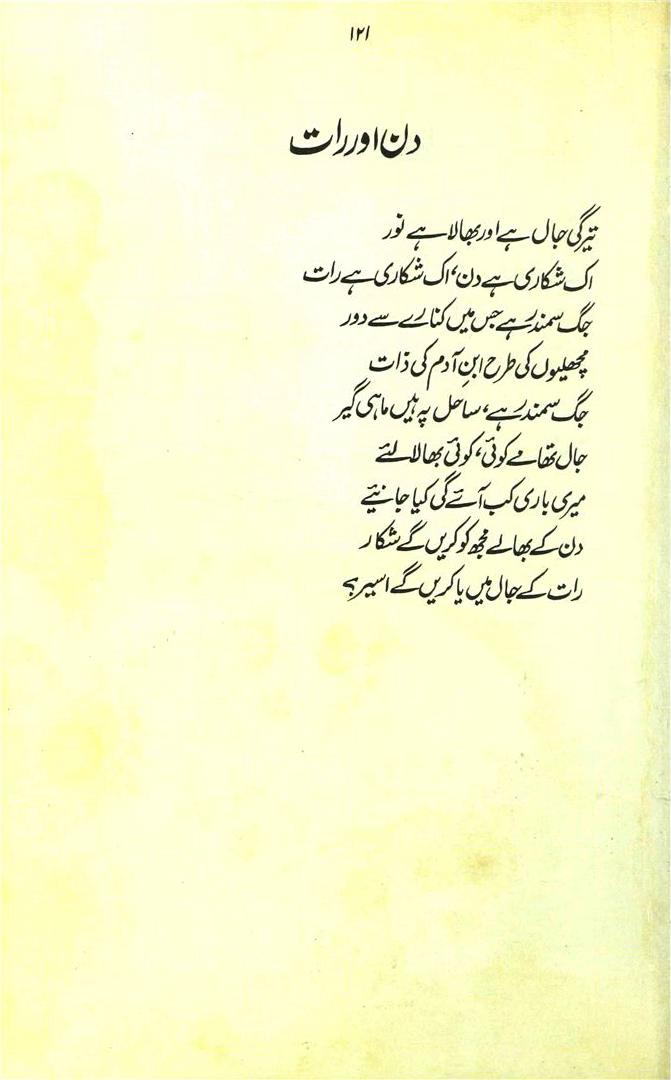 ۱۲۱
دن اور رات
تیرگی جال ہے اور بھالا ہے نور
اک شکاری ہے دن، اک شکاری ہے رات
جگ سمندر ہے جس میں کنارے سے دور
مچھلیوں کی طرح ابنِ آدم کی ذات
جگ سمندر ہے، ساحل پہ ہیں ماہی گیر
جال تھامے کوئی، کوئی بھالا لئے
میری باری کب آئے گی کیا جانیئے
دن کے بھالے مجھ کو کریں گے شکار
رات کے جال میں یا کریں گے اسیر؟